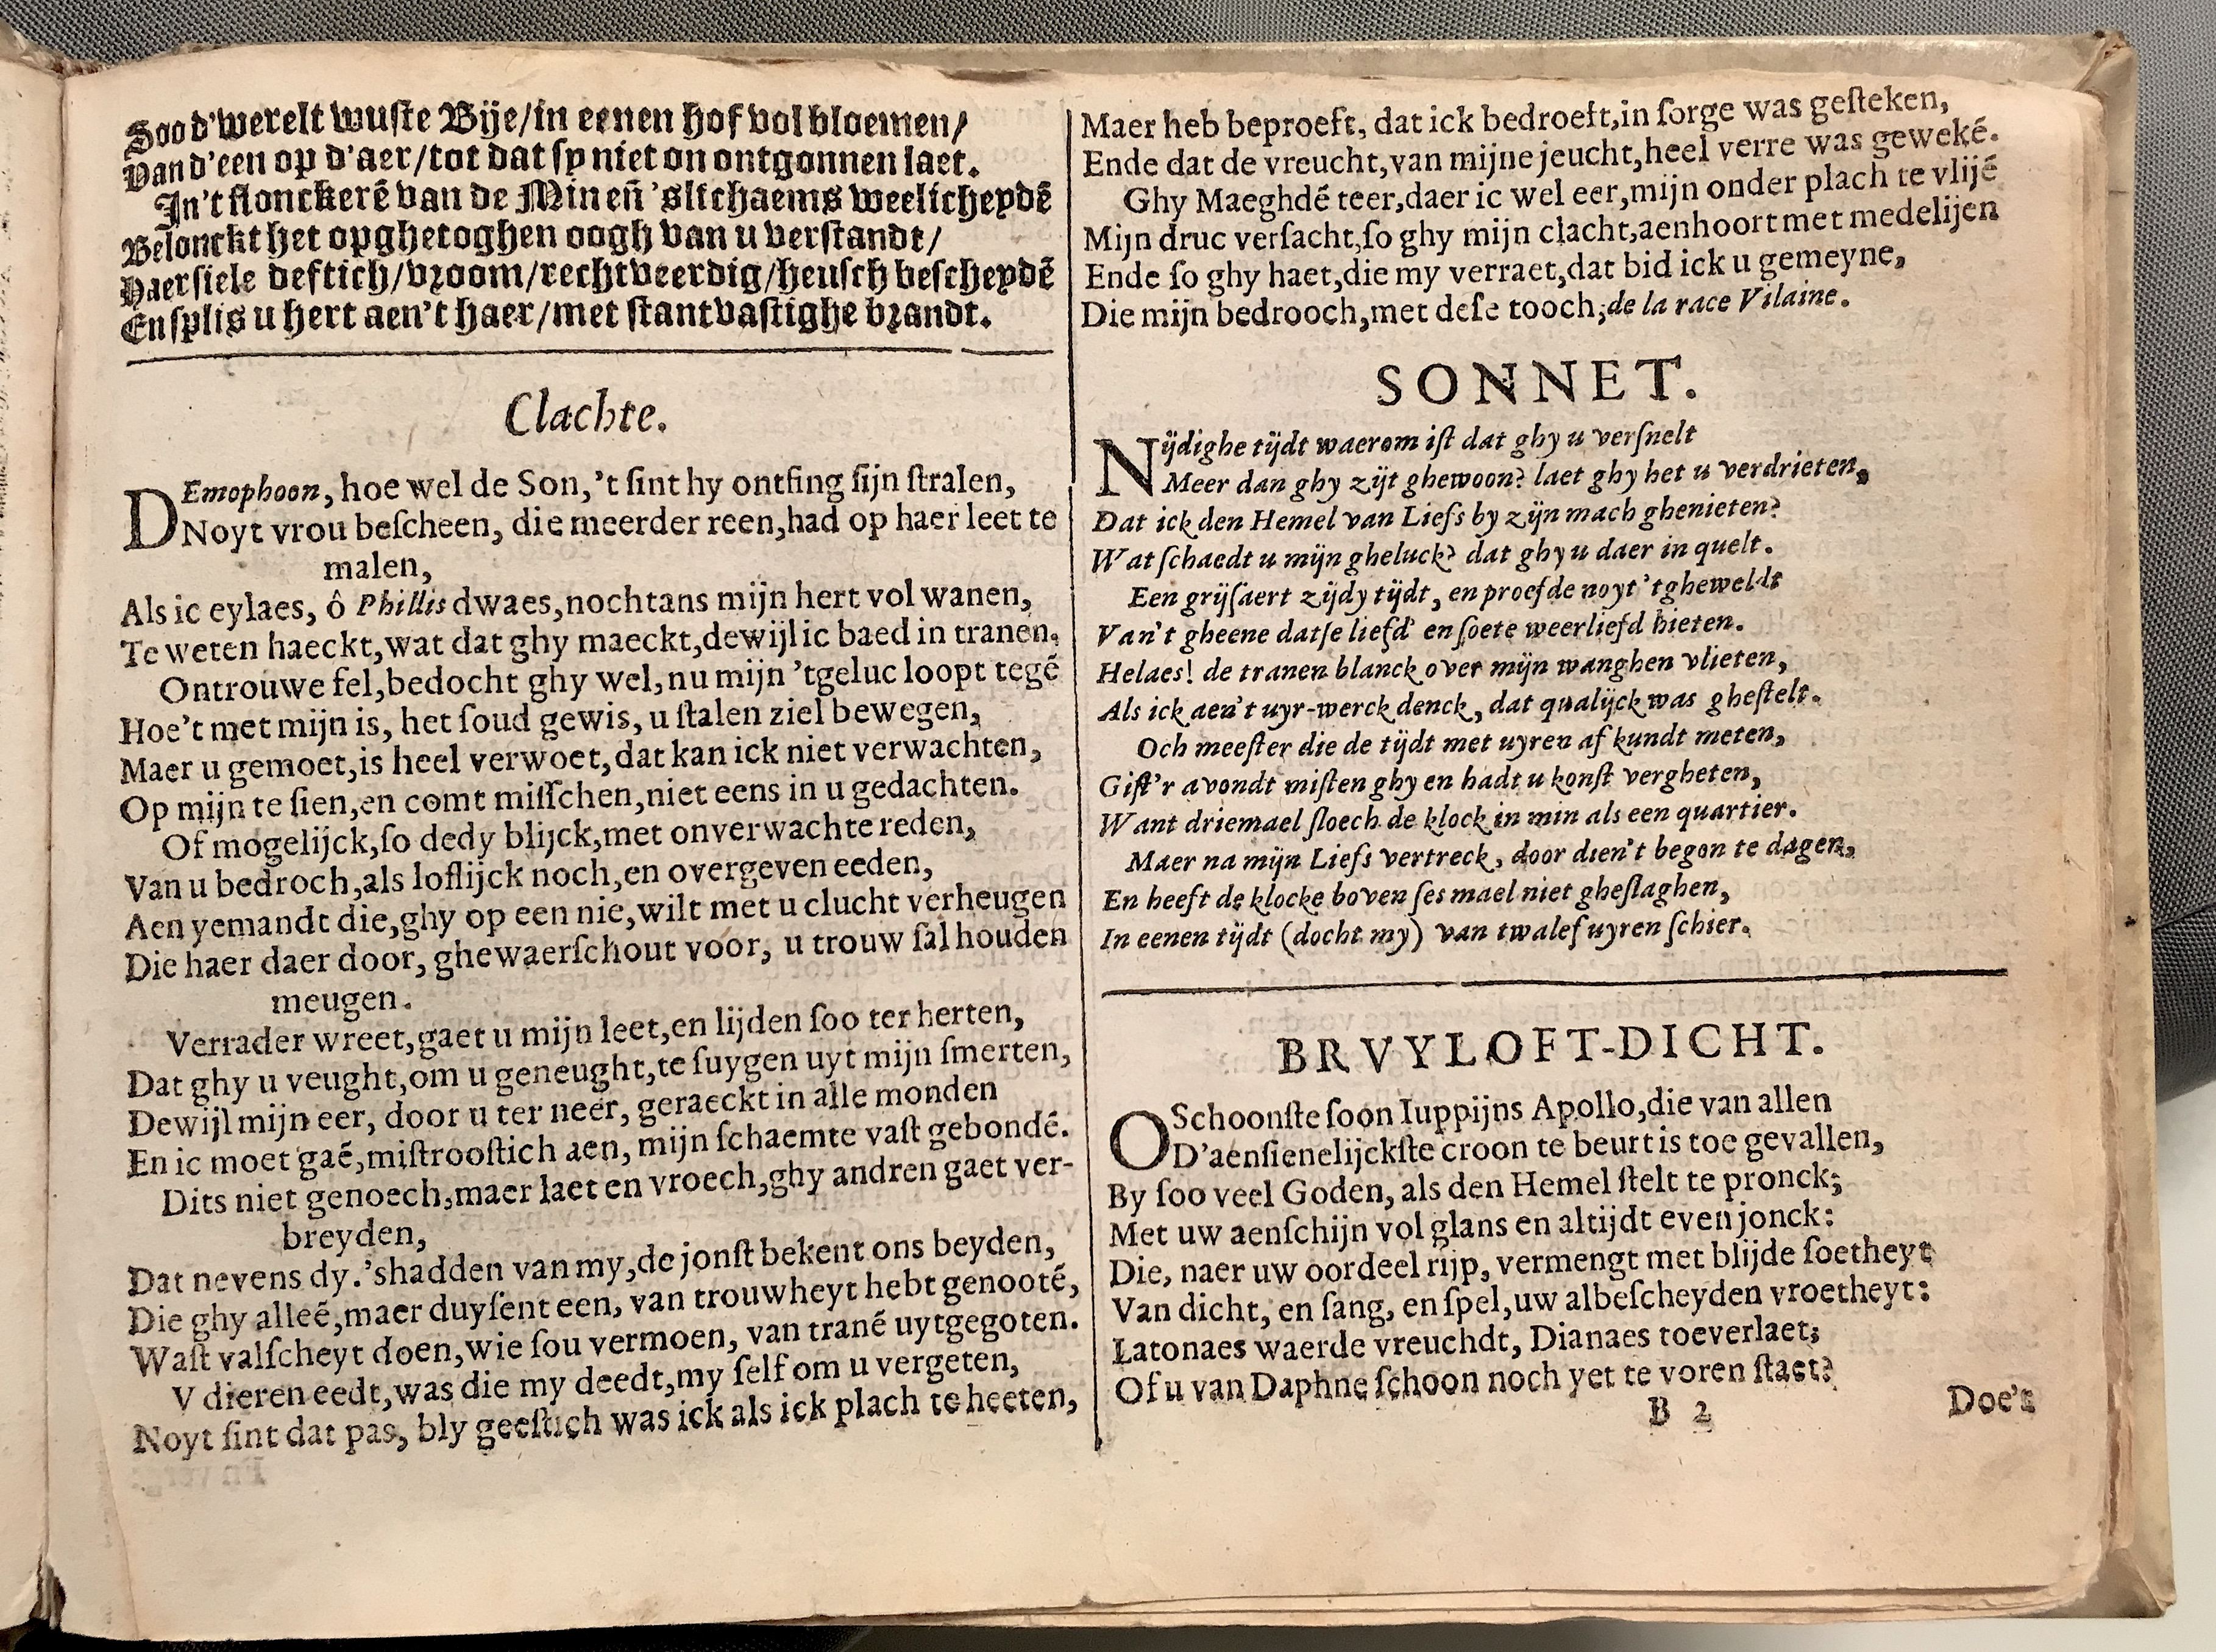 Soo d'werelt wuſte Bije/in eenen hof vol bloemen/
Van d'een op d'aer/tot dat ſy niet on ontgonnen laet.
In't flonckerē van de Min eñ 'slichaems weelicheydē
Belonckt het opghetoghen oogh van u verſtandt/
Haer ſiele deftich/vroom/rechtveerdig/heuſch beſcheydē
En ſplis u hert aen't haer/met ſtantvaſtighe brandt.
Clachte.
DEmophoon, hoe wel de Son,'t ſint hy ontfing ſijn ſtralen,
Noyt vrou beſcheen, die meerder reen,had op haer leet te
malen,
Als ic eylaes, ô Phillis dwaes,nochtans mijn hert vol wanen,
Te weten haeckt,wat dat ghy maeckt,dewijl ic baed in tranen.
Ontrouwe fel,bedocht ghy wel,nu mijn 'tgeluc loopt tegē
Hoe't met mijn is, het ſoud gewis, u ſtalen ziel bewegen,
Maer u gemoet,is heel verwoet,dat kan ick niet verwachten,
Op mijn te ſien,en comt miſſchen,niet eens in u gedachten.
Of mogelijck,ſo dedy blijck,met onverwachte reden,
Van u bedroch,als loflijck noch,en overgeven eeden,
Aen yemandt die,ghy op een nie,wilt met u clucht verheugen
Die haer daer door, ghewaerſchout voor, u trouw ſal houden
meugen.
Verrader wreet,gaet u mijn leet,en lijden ſoo ter herten,
Dat ghy u veught,om u geneught,te ſuygen uyt mijn ſmerten,
Dewijl mijn eer, door u ter neer, geraeckt in alle monden
En ic moet gaē,miſtrooſtich aen, mijn ſchaemte vaſt gebondē.
Dits niet genoech,maer laet en vroech,ghy andren gaet ver-
breyden,
Dat nevens dy.'shadden van my,de jonſt bekent ons beyden,
Die ghy alleē,maer duyſent een, van trouwheyt hebt genootē,
Waſt valſcheyt doen,wie ſou vermoen, van tranē uytgegoten.
V dieren eedt,was die my deedt,my ſelf om u vergeten,
Noyt ſint dat pas, bly geeſtich was ick als ick plach te heeten,
Maer heb beproeft, dat ick bedroeft,in ſorge was geſteken,
Ende dat de vreucht,van mijne jeucht,heel verre was gewekē.
Ghy Maeghdē teer,daer ic wel eer,mijn onder plach te vlijē
Mijn druc verſacht,ſo ghy mijn clacht,aenhoort met medelijen
Ende ſo ghy haet,die my verraet,dat bid ick u gemeyne,
Die mijn bedrooch,met deſe tooch;de la race Vilaine.
SONNET.
Nijdighe tijdt waerom iſt dat ghy u verſnelt
Meer dan ghy zijt ghewoon? laet ghy het u verdrieten,
Dat ick den Hemel van Liefs by zijn mach ghenieten?
Wat ſchaedt u mijn gheluck? dat ghy u daer in quelt.
Een grijſaert zijdy tijdt, en proefde noyt 'tgheweldt
Van't gheene datſe liefd' en ſoete weerliefd hieten.
Helaes! de tranen blanck over mijn wanghen vlieten,
Als ick aen't uyr-werck denck, dat qualijck was gheſtelt.
Och meeſter die de tijdt met uyren af kundt meten,
Giſt'r avondt miſten ghy en hadt u konſt vergheten,
Want driemael ſloech de klock in min als een quartier.
Maer na mijn Liefs vertreck, door dien't begon te dagen,
En heeft de klocke boven ſes mael niet gheſlaghen,
In eenen tijdt (docht my) van twalef uyren ſchier.
BRVYLOFT-DICHT.
O Schoonſte ſoon Iuppijns Apollo,die van allen
D'aenſienelijckſte croon te beurt is toe gevallen,
By ſoo veel Goden, als den Hemel ſtelt te pronck;
Met uw aenſchijn vol glans en altijdt even jonck:
Die, naer uw oordeel rijp, vermengt met blijde ſoetheyt
Van dicht, en ſang, en ſpel,uw albeſcheyden vroetheyt:
Latonaes waerde vreuchdt, Dianaes toeverlaet;
Of u van Daphne ſchoon noch yet te voren ſtaet?
B 2
Doe't